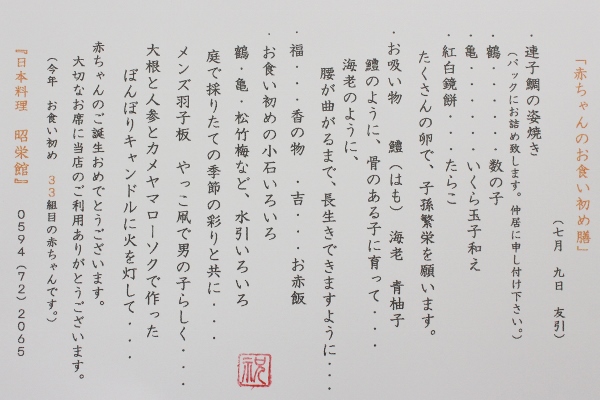 「赤ちゃんのお食い初め膳」
（七月　九日　友引）
・連子鯛の姿焼き
（パックにお詰め致します。仲居に申し付け下さい。）
・鶴・・・・・・数の子
・亀・・・・・・いくら玉子和え
・紅白鏡餅・・・・たらこ
たくさんの卵で、子孫繁栄を願います。
・お吸い物　　鱧（はも）　海老　青柚子
鱧のように、骨のある子に育って・・・
海老のように、
腰が曲がるまで、長生きできますように・・・
・福・・・香の物　・吉・・・お赤飯
・お食い初めの小石いろいろ
鶴・亀・松竹梅など、水引いろいろ
庭で採りたての季節の彩りと共に・・・
メンズ羽子板　やっこ凧で男の子らしく・・・
大根と人参とカメヤマローソクで作った
ぼんぼりキャンドルに火を灯して・・・
赤ちゃんのご誕生おめでとうございます。
大切なお席に当店のご利用ありがとうございます。
（今年　お食い初め　３３組目の赤ちゃんです。）
『日本料理　昭栄館』　０５９４（７２）２０６５
祝